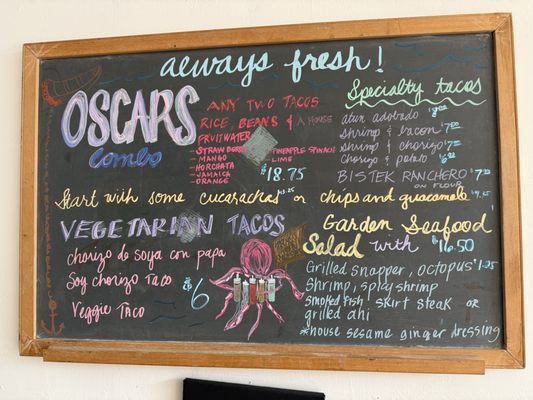 always fresh!
OSCARS
Combo
ANY TWO TACOS
RICE, BEANS & A HOUSE
FRUITWATER
- STRAWBERRY
- MANGO
- HORCHATA
- JAMAICA
- ORANGE
PINEAPPLE SPINACH
LIME
$18.75
Specialty tacos
atun adobado
Shrimp & bacon $7.00
Shrimp & chorizo $7.00
Chorizo & potato
BISTEK RANCHERO $7.50
ON FLOUR
Start with some cucarachas or chips and guacamole
VEGETARIAN TACOS
chorizo de soya con papa
Soy chorizo Taco
Veggie Taco
$6
Garden Seafood
Salad with $16.50
Grilled snapper, octopus
Shrimp, spicy shrimp
smoked fish skirt steak or
grilled ahi
*house sesame ginger dressing